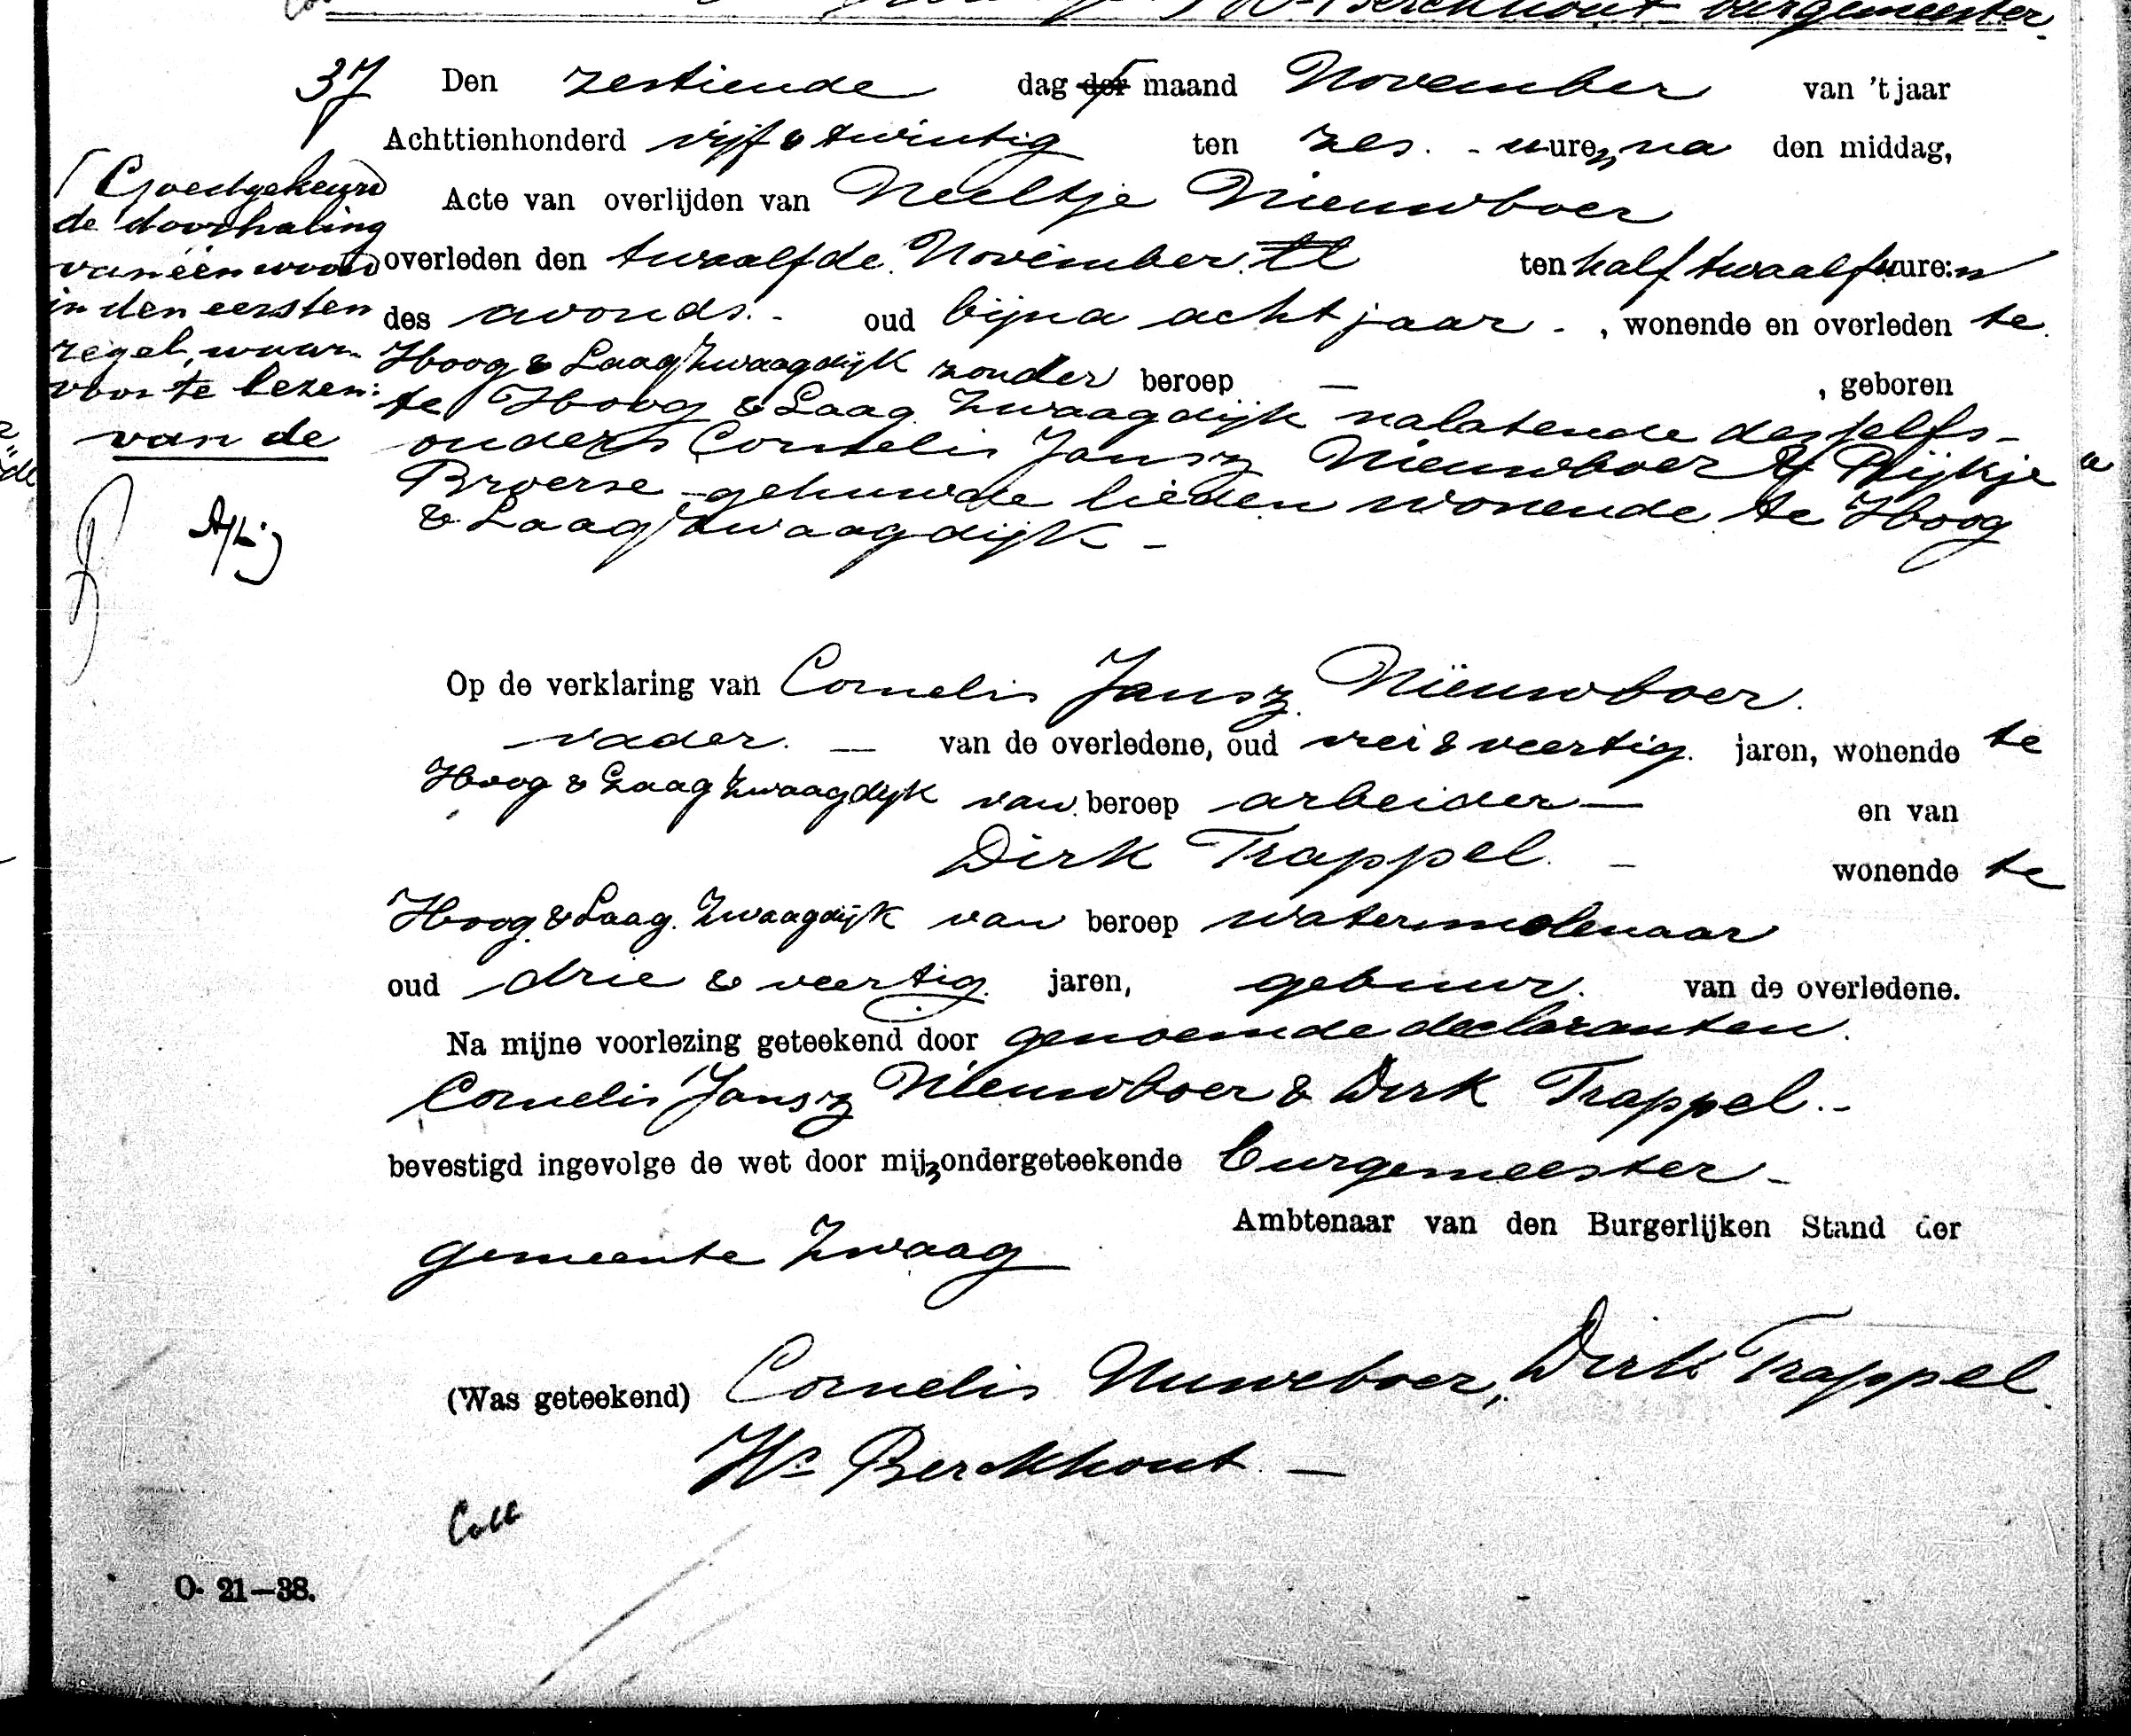 Berckhout burgemeester
37 Den zestiende dag der maand November van 't jaar
Achttienhonderd vijf & twintig ten zes. - uure, na den middag,
Acte van overlijden van Neeltje Nieuwboer
overleden den twaalfde November ten half twaalf uure:n
des avonds. - oud bijna acht jaar - , wonende en overleden te
Hoog & Laag Zwaagdijk zonder beroep — , geboren
te Hoog & Laag Zwaagdijk nalatende deszelfs -
ouders Cornelis Jansz Nieuwboer & Rijkje
Broerse - gehuwde lieden wonende te Hoog
& Laag Zwaagdijk -
Goedgekeurd
de doorhaling
van één woord
in den eersten
regel, waar-
voor te lezen:
van de
Op de verklaring van Cornelis Jansz. Niëuwboer.
vader. — van de overledene, oud vier & veertig. jaren, wonende te
Hoog & Laag Zwaagdijk van beroep arbeider — en van
Dirk Trappel. - wonende te
Hoog & Laag. Zwaagdijk van beroep watermolenaar
oud drie & veertig. jaren, gebuur. van de overledene.
Na mijne voorlezing geteekend door genoemde declaranten.
Cornelis Jansz Nieuwboer & Dirk Trappel. -
bevestigd ingevolge de wet door mij, ondergeteekende burgemeester -
Ambtenaar van den Burgerlijken Stand der
gemeente Zwaag
(Was geteekend) Cornelis Nuweboer, Dirk Trappel.
Ws Berckhout. —
Coll
O. 21—38.